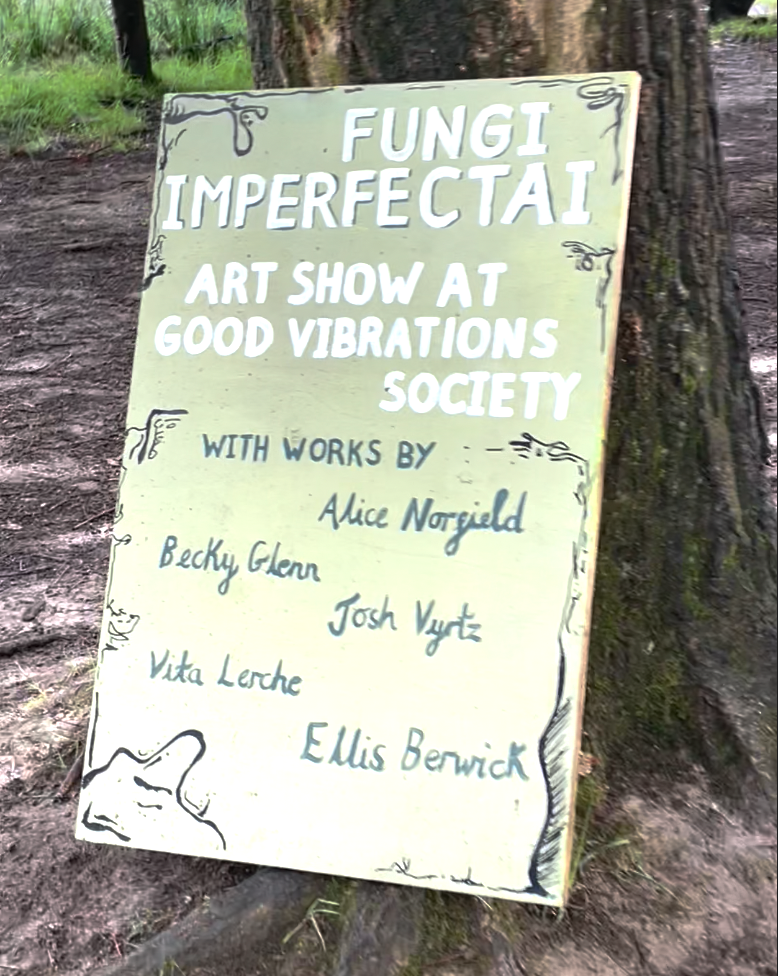 FUNGI
IMPERFECTAI
ART SHOW AT
GOOD VIBRATIONS
SOCIETY
WITH WORKS BY
Alice Norgield
Becky Glenn
Josh Vyrtz
Vita Lerche
Ellis Berwick